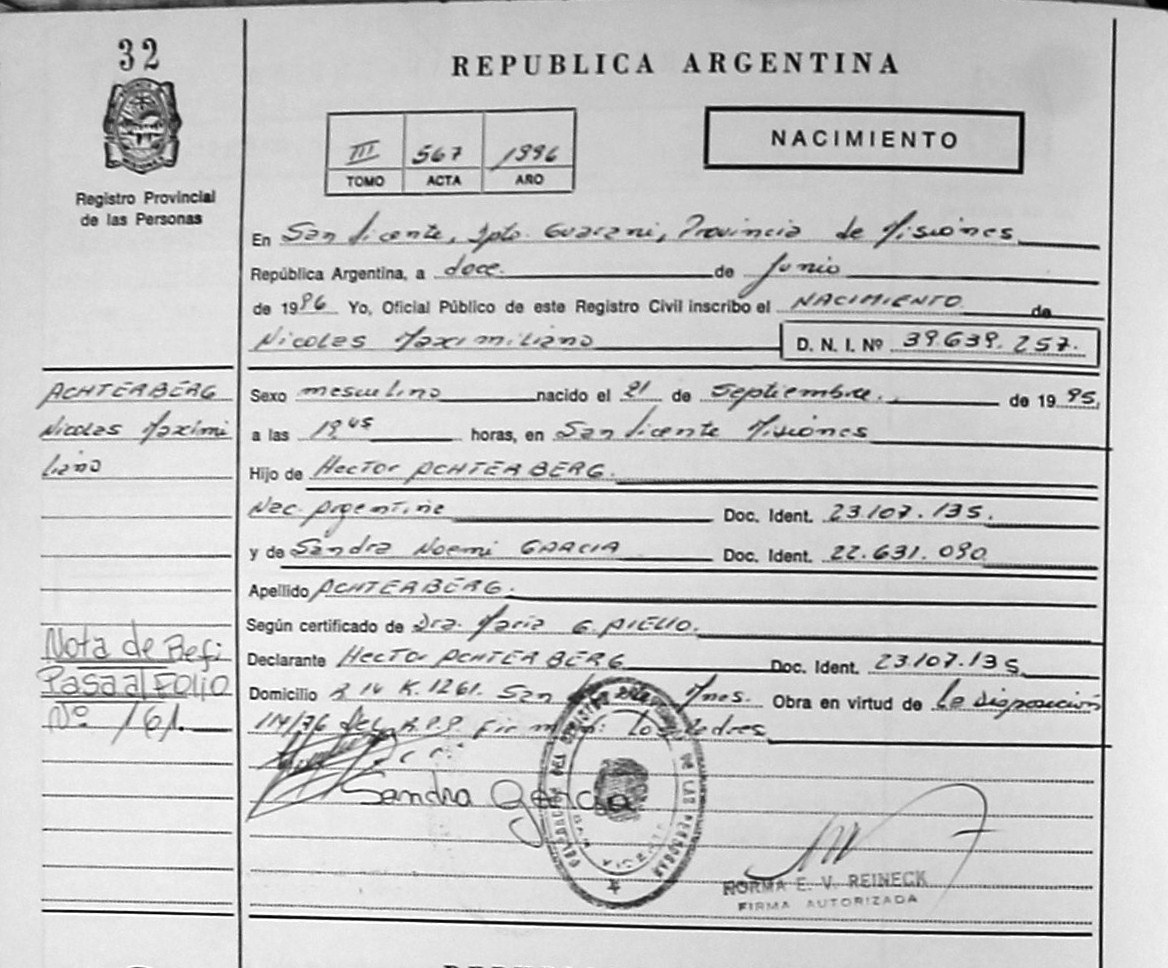 32
REPUBLICA ARGENTINA
NACIMIENTO
III 567 1996
TOMO ACTA AÑO
Registro Provincial
de las Personas
En San Vicente, Dpto. Guarani, Provincia de Misiones
República Argentina, a doce de Junio
de 1996 Yo, Oficial Público de este Registro Civil inscribo el NACIMIENTO de
Nicolas Maximiliano D. N. I. Nº 39.639.257.
ACHTERBERG
Nicolas Maximi
liano
Sexo masculino nacido el 21 de Septiembre. de 19 95,
a las 19,45 horas, en San Vicente Misiones
Hijo de Hector ACHTERBERG.
Nac. Argentina Doc. Ident. 23.107.135.
y de Sandra Noemi GARCIA Doc. Ident. 22.631.090
Apellido ACHTERBERG.
Según certificado de Dra. Maria G. AIELLO.
Declarante HECTOR ACHTERBERG Doc. Ident. 23.107.135
Domicilio R 14 K. 1261. San Mnes. Obra en virtud de la disposición
114/76 del R.P.P. Firman: Los Padres
Nota de Refe
Pasa al FOLIO
Nº 161.
Sandra Garcia
NORMA E. V. REINECK
FIRMA AUTORIZADA